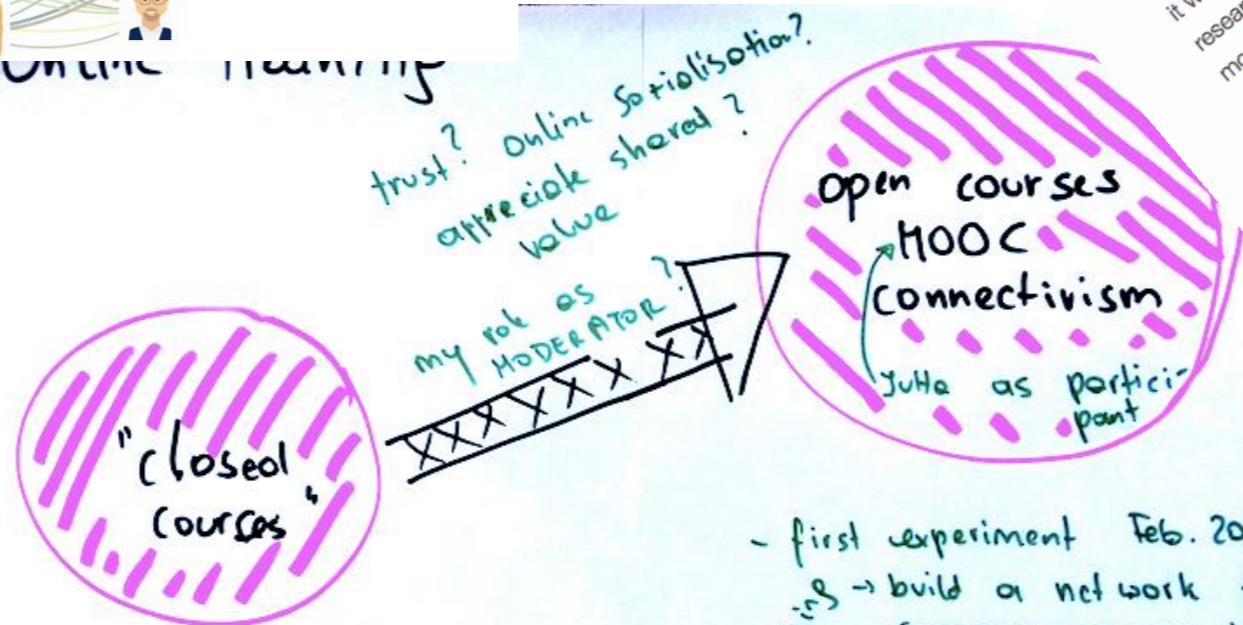 Online
trust? Online Sozialisation?
appreciate shared?
value
my role as
MODERATOR?
"closed
courses"
open courses
MOOC
connectivism
Jutta as partici-
pant
- first experiment Feb. 20
→ build a network
it w
resear